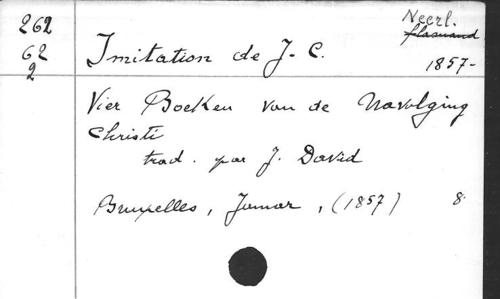 262
62
2
Imitation de J.-C.
Neerl.
flamand
1857-
Vier Boeken van de Navolging
Christi
trad. par J. David
Bruxelles, Jamar, (1857) 8.